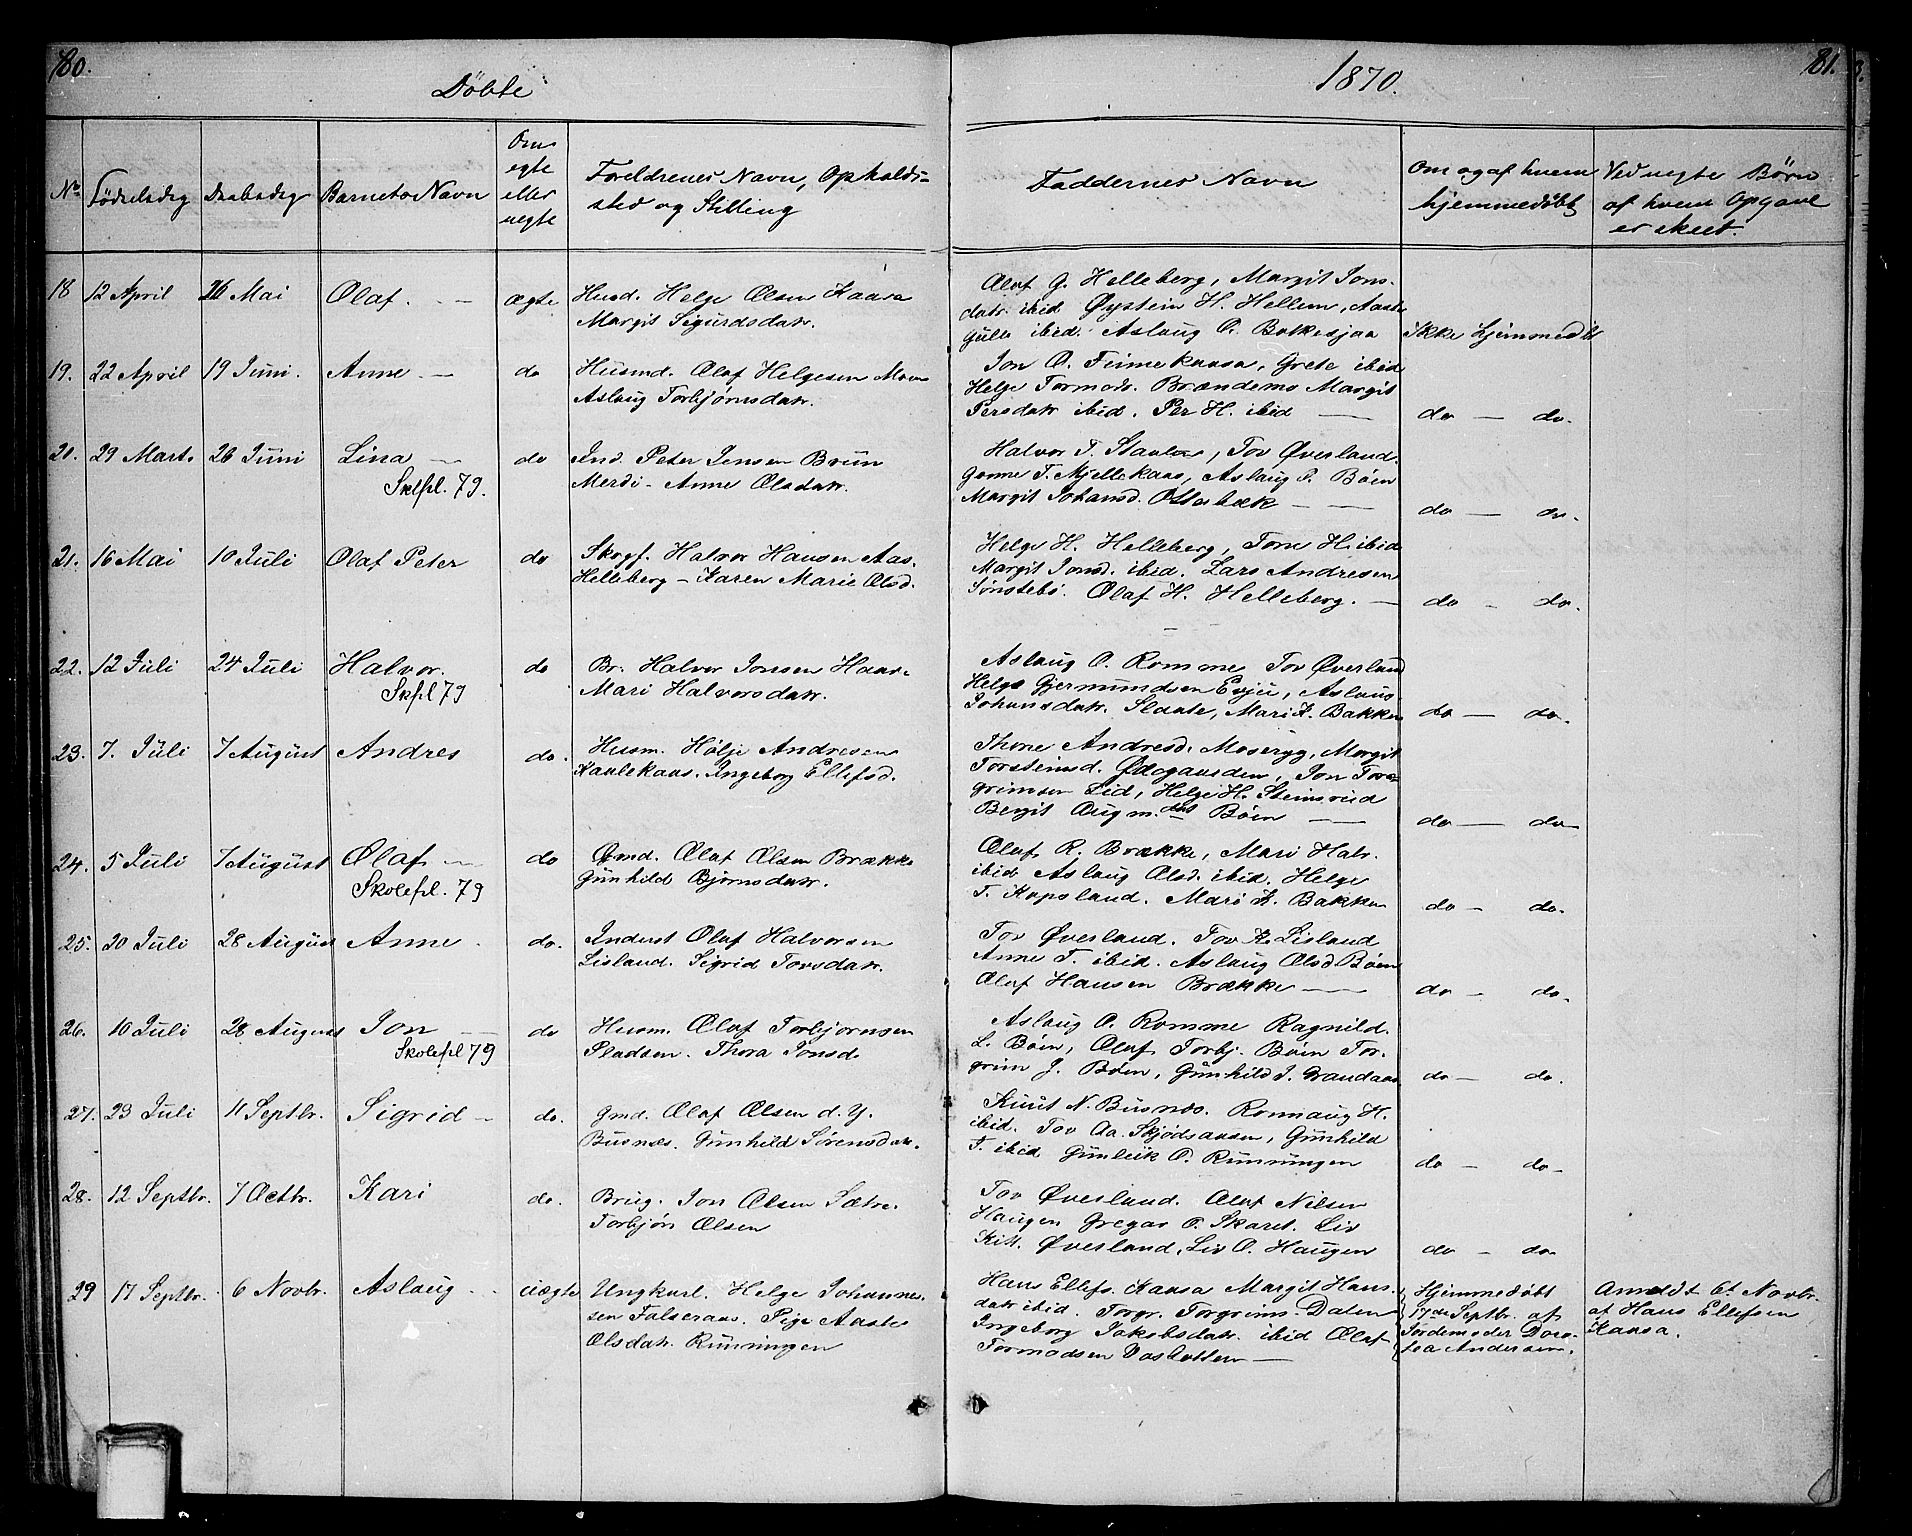 80.
Döbte
1870.
81.
No
Födselsdag
Daabsdag
Barnets Navn
Om
egte
eller
uegte
Foreldrenes Navn, Opholds-
sted og Stilling
Faddernes Navn
Om og af hvem
hjemmedöbt
Ved uegte Börn
af hvem Opgave
er skeet.
18 12 April 26 Mai Olaf. — ægte Husd. Helge Olsen Kaasa
Margit Sigurdsdatr.
Olaf G. Helleberg, Margit Jons-
datr ibid Øystein H. Hellem, Aaste
Gulb ibid. Aslaug O. Bakkesjaa
Ikke hjemmedöbt
19. 22 April 19 Juni. Anne — do Husmd. Olaf Helgesen Moen
Aslaug Torbjörnsdatr.
Jon O. Finnekaasa, Grete ibid
Helge Tormods. Brændemo Margit
Persdatr ibid. Per H. ibid —
do — do.
20. 29 Mart. 26 Juni Lina — do Ind. Peter Jensen Brun
Skfpl. 79.
Merdi - Anne Olsdatr.
Halvor T. Staulen, Tov Øverland.
Gonne T. Mjellekaas, Aslaug P. Böen
Margit Johansd. Otterbæk —
do — do.
21. 16 Mai 10 Juli Olaf Peter do Skogf. Halvor Hansen Aas.
Helleberg - Karen Marie Olsd.
Helge H. Helleberg, Tone H. ibid
Margit Jonsd. ibid. Lars Andresen
Sönstebö. Olaf H. Helleberg. —
do - do.
22. 12 Juli 24 Juli Halvor. do Br. Halvor Jonsen Haas-
Skfpl 79
Mari Halvorsdatr.
Aslaug O. Romme, Tov Øverland
Helge Gjermundsen Evju, Aslaug
Johansdatr. Slaate, Mari K. Bakken
do — do.
23. 7. Juli 7 August Andres do. Husm. Hölje Andresen
Kaulekaas. Ingeborg Ellefsd.
Thone Andresd. Moseryg, Margit
Torsteinsd. Ødegaarden, Jon Tor-
grimsen Lid, Helge H. Steinsreid
Bergit Augm. das Böen —
do — do
24. 5 Juli 7 August Olaf — do Gmd. Olaf Olsen Brække
Skolepl. 79
Gunhild Björnsdatr.
Olaf R. Brække, Mari Halv.
ibid Aslaug Olsd. ibid. Helge
T. Kopsland. Mari K. Bakken
do — do.
25. 20 Juli 28 August Anne. do. Inderst Olaf Halvorsen
Lisland. Sigrid Tovsdatr.
Tov Øverland. Tov K. Lisland
Anne T. ibid. Aslaug Olsd Böen
Olaf Hansen Brække —
do — do.
26. 10 Juli 28 August Jon — do Husm. Olaf Torbjörnsen
Skolepl 79
Pladsen. Thora Jonsd.
Aslaug O. Romme Ragnild.
L. Böen, Olaf Torbj. Böen Tor-
grim J. Böen, Gunhild J. Grandaas
do — do.
27. 23 Juli 11 Septbr. Sigrid — do. Gmd. Olaf Olsen d. Y.
Busnæs. Gunhild Sörensdatr.
Knut N. Busnes. Ronnaug H.
ibid. Tov Aa. Skjödsaasen, Gunhild
T. ibid Gunleik O. Runningen
do — do-
28. 12 Septbr. 7 Octbr. Kari do. Brug. Jon Olsen Sætre.
Torbjön Olsen
Tov Øverland. Olaf Nilsen
Haugen Gregar O. Skaret. Liv
Kitt. Øverland, Liv O. Haugen
do - do
29 17 Septbr. 6 Novbr. Aslaug . . uægte Ungkarl. Helge Johannes-
sen Falseraas. Pige Aaste
Olsdatr. Runningen
Hans Ellefs. Kaasa Margit Hans-
datr ibid. Torgr. Torgrims. Dalen
Ingeborg Jakobsdatr. ibid Olaf
Tormodsen Daslotten —
Hjemmedöbt
17de Septbr. af
Jordemoder Doro-
tea Andersen.
Anmeldt 6t Novbr.
af Hans Ellefsen
Kaasa.